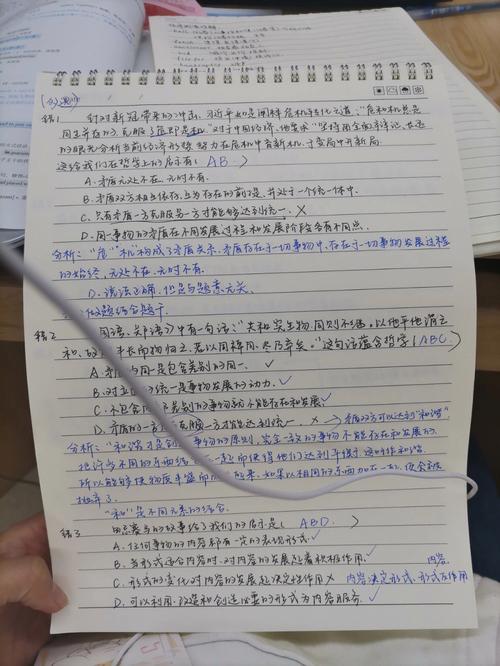 错1 针对新冠带来的冲击，习近平如是阐释危机转化之道："危和机总是
同生并存的，克服了危即是机。"对于中国经济，他要求"坚持用全面、辩证、长远
的眼光分析当前经济形势，努力在危机中育新机，于变局中开新局
这给我们在哲学上的启示有（ AB ）
A. 矛盾无处不在，无时不有.
B. 矛盾双方相互依存，互为存在的前提，并处于一个统一体中.
C. 只有矛盾一方克服另一方才能够达到统一. ×
D. 同一事物的矛盾在不同发展过程和发展阶段各有不同点.
分析："危""机"构成了矛盾关系，矛盾存在于一切事物中，存在于一切事物发展过程
的始终，无处不在，无时不有.
D. 说法正确，但是与题意无关.
做题结合题干.
错2 国语，郑语》中有一句话："夫和实生物，同则不继。以他平他谓之
和，故 丰长而物归之，若以同裨同，尽乃弃矣。"这句话蕴含哲学（ABC）
A. 矛盾 同一是包含差别的同一. ✓
B. 对立 统一是事物发展的动力. ✓
C. 不包含 差别的事物就不能存在和发展 ✓
D. 矛盾的一方 克服 一方才能达到统一. × 矛盾双方可以达到"和谐"
分析："和谐才是创 事物的原则，完全一致的事物不能存在和发展的，
把许多不同的东西结 一起而使得他们达到平衡，这叫作和谐.
所以能够使物质丰盛而 起来，如果以相同的东西加在一起，便会被
抛弃了.
"和"是不同元素的结合.
错3 故事给了我们的启示是（ ABD ）
A. 任何事物的内容都有一定的表现形式 ✓
B. 当形式适合内容时，对内容的发展起着积极作用. ✓
C. 形式的变化对内容的发展起决定性作用 × 内容决定形式，形式反作用
内容.
D. 可以利用、改造和创造必要的形式为内容服务. ✓